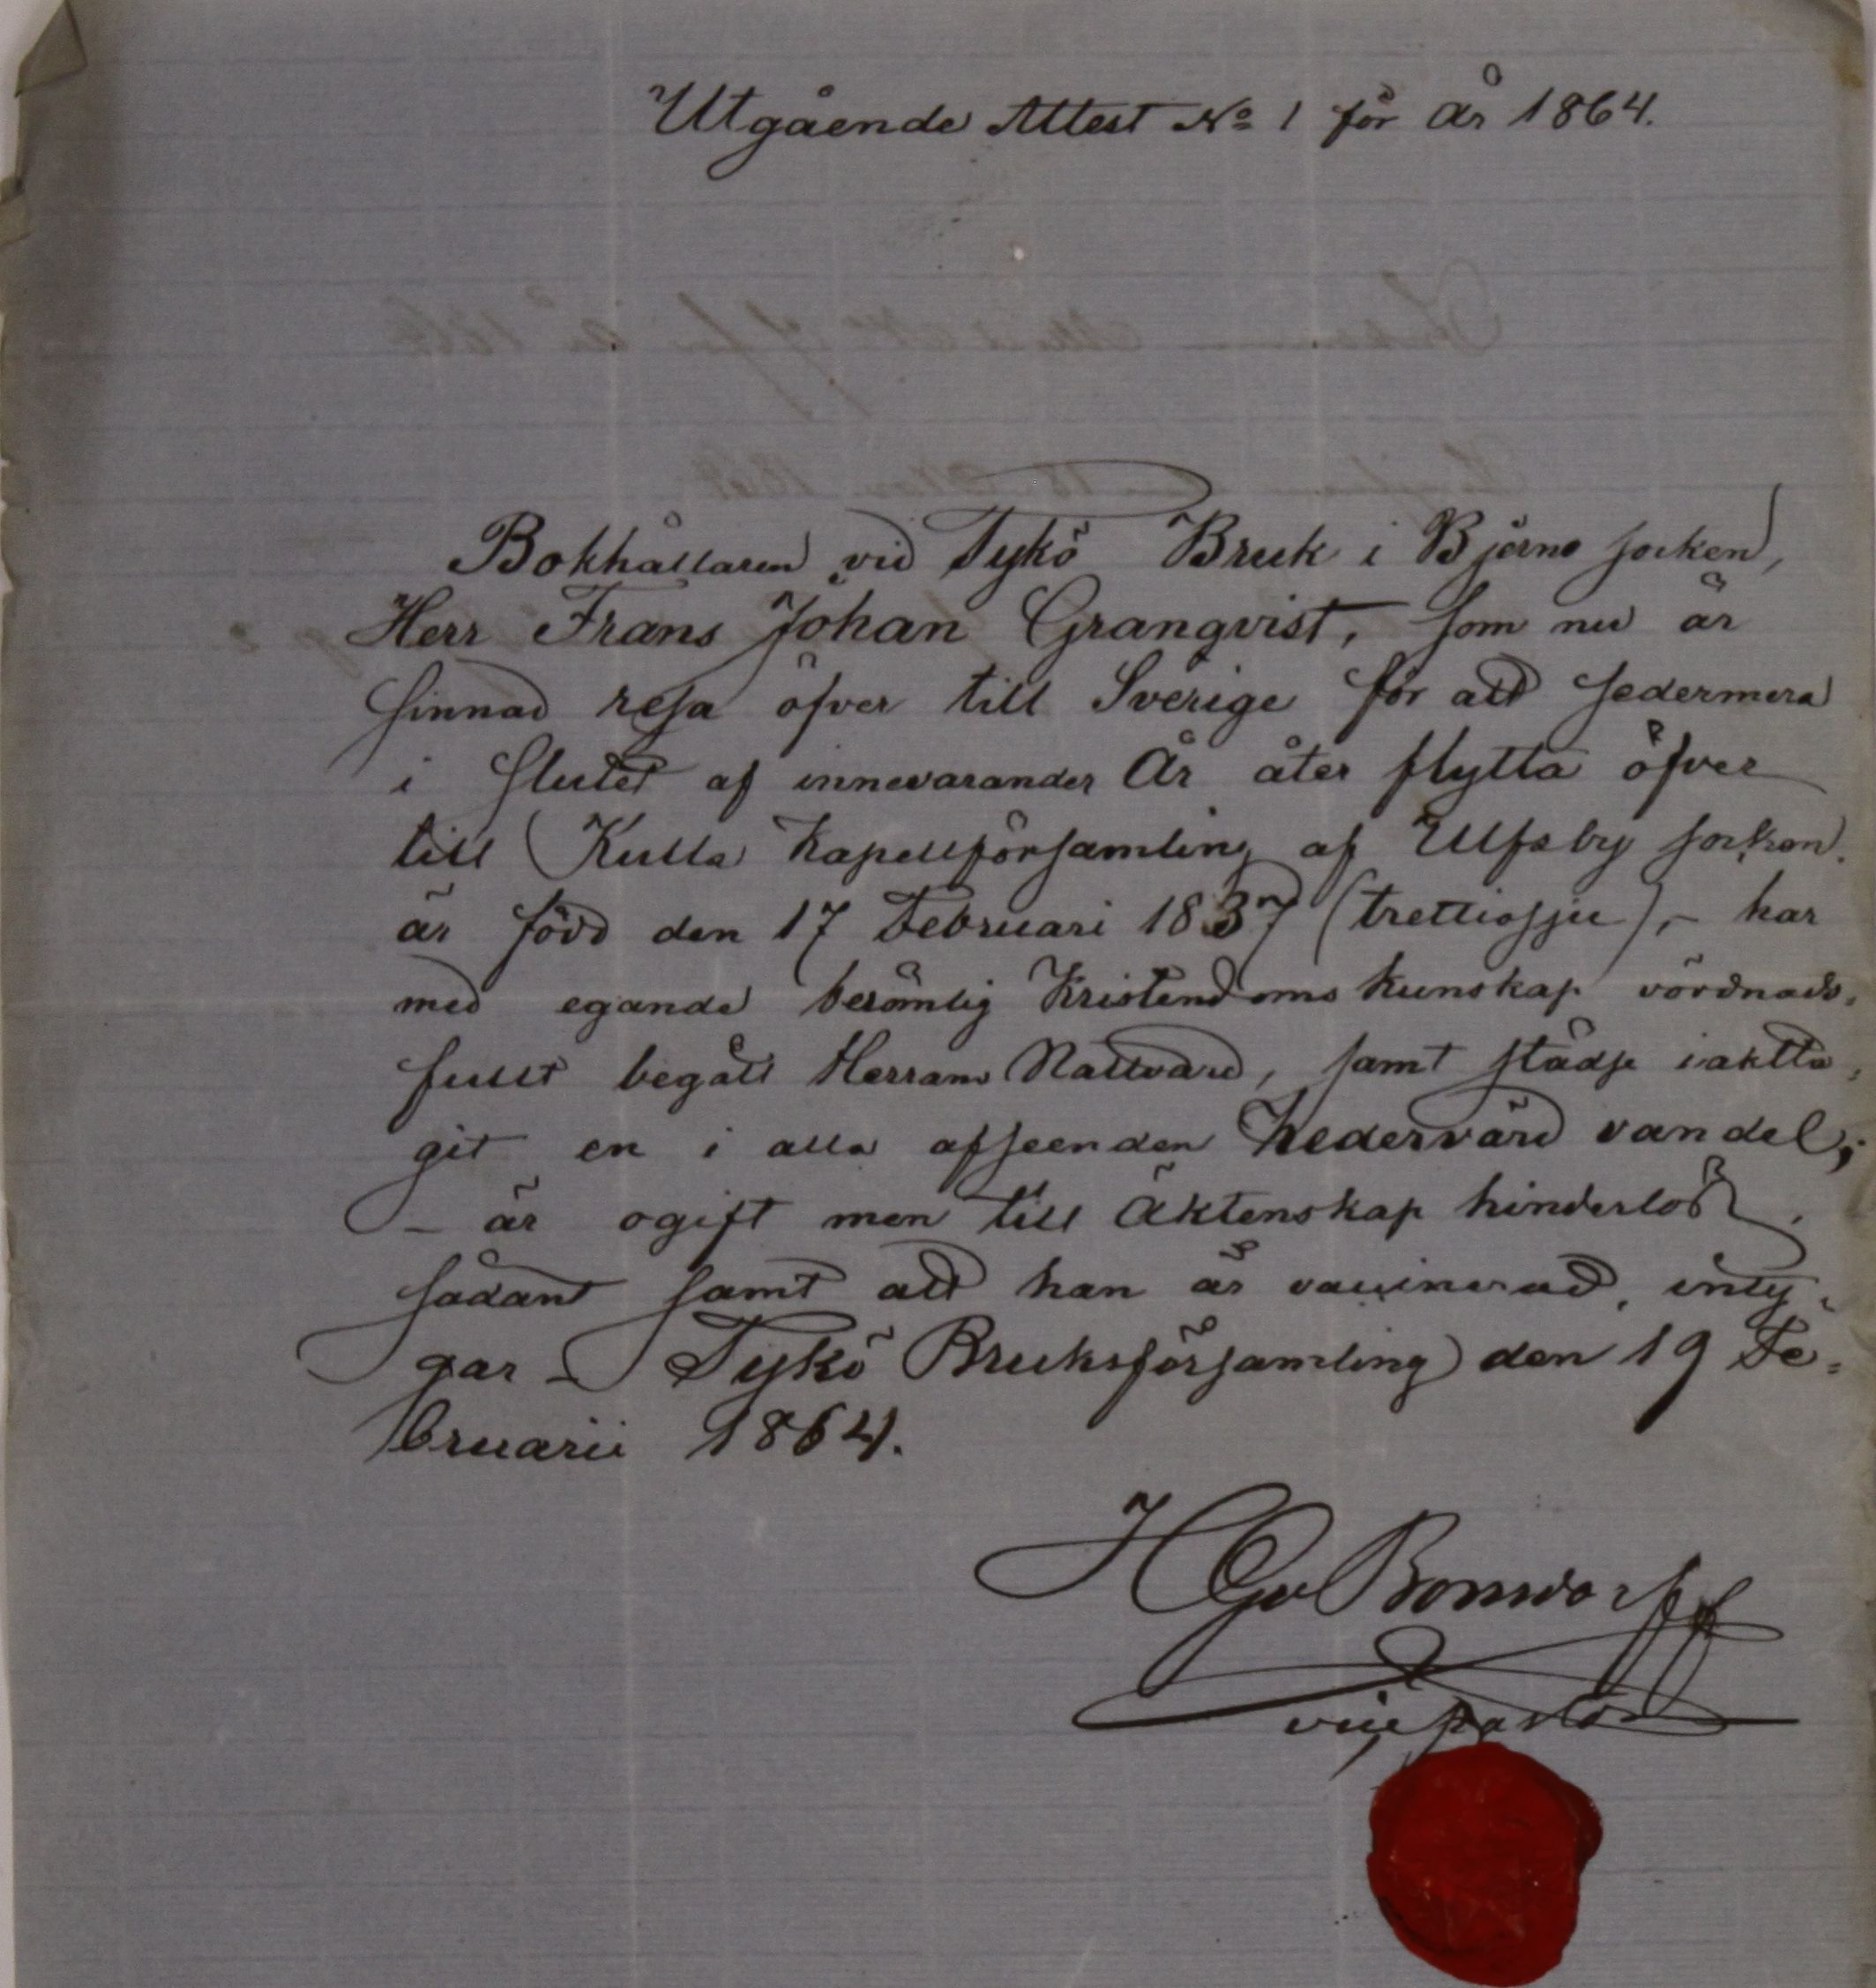 Utgående Attest No 1 för År 1864.
Bokhållaren vid Tykö Bruk i Bjerno socken,
Herr Frans Johan Granqvist, som nu är
sinnad resa öfver till Sverige för att sedermera
i slutet af innevarander År åter flytta öfver
till Kulla Kapellförsamling af Ulfsby socken.
är född den 17 Februari 1837 (trettiosju), - har
med egande berömlig Kristendoms kunskap vördnads-
fullt begått Herrans Nattvard, samt städse iaktta-
git en i alla afseenden hedervärd vandel;
- är ogift men till Äktenskap hinderlös,
sådant samt att han är vaccinerad, inty-
gar - Tykö Bruksförsamling den 19 Fe-
bruarii 1864.
Bonsdorff
vice pastor